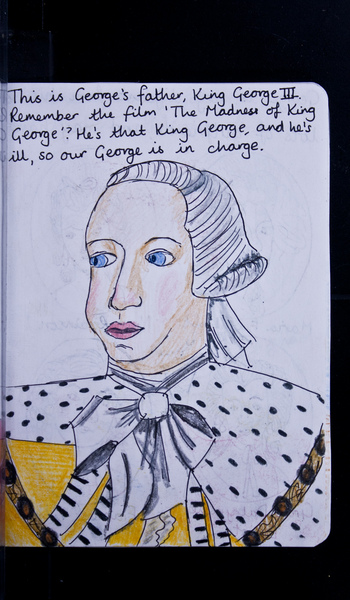 This is George's father, King George III.
Remember the film 'The Madness of King
George'? He's that King George, and he's
ill, so our George is in charge.